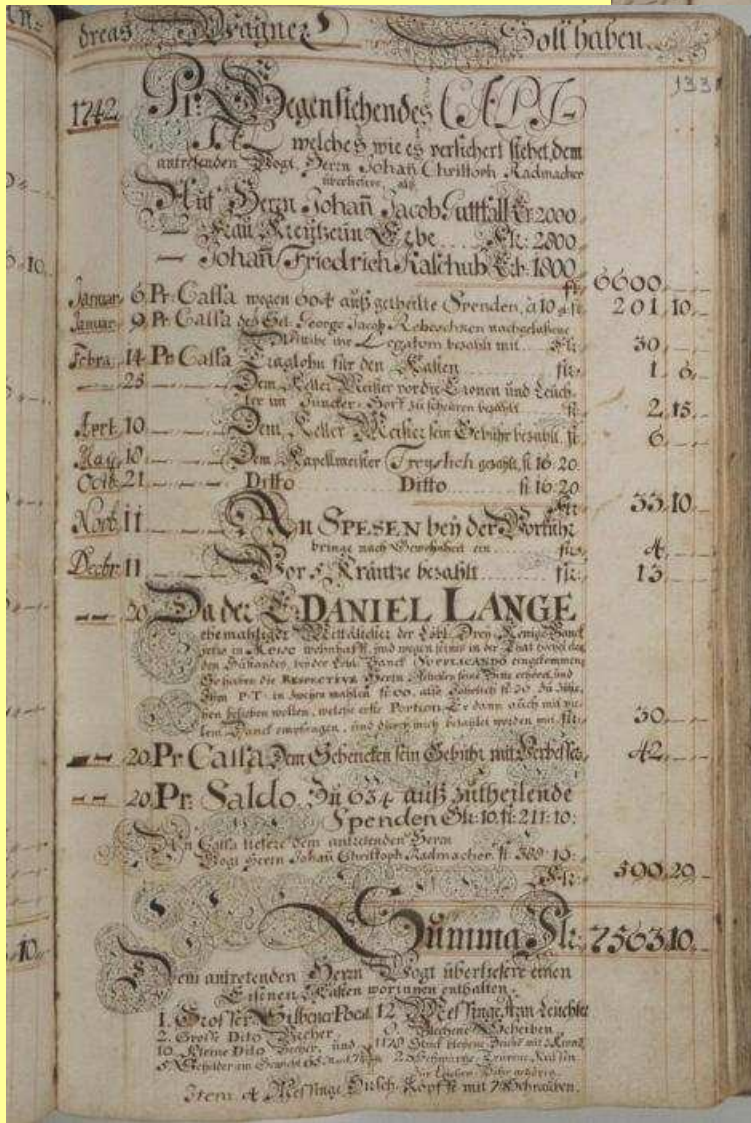 dreas Wagner Soll haben
133
1742 Pr. Gegenstehendes CAPI-
TAL welches wie es versichert stehet, dem
antretenden Vogt, Herrn Johan̄ Christoph Radmacher
überliefere, als
Auf Herrn Johan̄ Jacob Guttfall 2000
— Frau Kreützerin Erbe flr: 2800
— Johan̄ Friedrich Kaschub 1800
flr 6600
Januar 6 Pr. Cassa wegen 604 auß getheilte Spenden, à 10 201 10
Januar 9 Pr. Cassa des Sel. George Jacob nachgelaßene
Wittwe ihr Legatum bezahlt mit flr 30
Febra. 14 Pr. Cassa Traglohn für den Kasten flr 1 6
25 Dem Keller Meister vor die Cronen und Leuch-
ter im Juncker-Hoff zu scheuren bezahlt fl 2 15
Aprl. 10 Dem Keller Meister sein Gebühr bezahlt fl 6
May. 10 Dem Kapellmeister Freyslich gezahlt, fl 16 20
Octb. 21 Ditto Ditto fl 16 20
flr 33 10
Novb. 11 An SPESEN bey der Vorführ
bringe nach Gewohnheit ein flr 4
Decbr. 11 Vor 5 Kräntze bezahlt flr 13
30 Da der E. DANIEL LANGE
ehemahliger Mittältester der Löbl. Drey Könige Banck
jetzo in wohnhafft, und wegen seines in der That
den Zustandes, bey der Löbl. Banck SUPPLICANDO eingekommen
So haben die RESPECTIVE Herrn Ältesten seine Bitte erhöret, und
Ihm P.T. in zweyen mahlen fl 60, also Jährlich fl 30 zu
hen belieben wollen, welche erste Portion Er dann auch mit vie-
lem Danck empfangen, und durch mich bezahlet worden mit flr 30
20 Pr Cassa Dem Schencken sein Gebühr mit 42
20 Pr. Saldo. Zu 634 auß zutheilende
Spenden Gr: 10. fl: 211: 10:
An Cassa liefere dem antretenden Herrn
Vogt Herrn Johan̄ Christoph Radmacher fl 389 10
flr 590 20
Summa Flr 7563 10
Dem antretenden Herrn Vogt überliefere einen
Eisenen Kasten worinnen enthalten.
1. Grosser Silberner Pocal 12 Messinge Arm Leuchter
2. Große Dito Becher 6. Blechene Scheiben
10. Kleine Dito Becher, und
5 Schilder am Gewicht 25 Schwartze
Item 4 Messinge Hirsch-Köpffe mit 7 Schrauben.